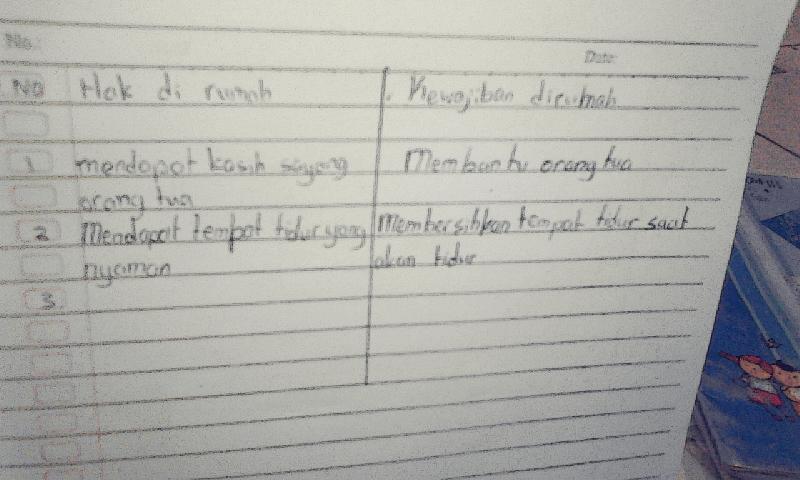 No:
Date:
No Hak di rumah Kewajiban dirumah
1 mendapat kasih sayang Membantu orang tua
orang tua
2 Mendapat tempat tidur yang Membersihkan tempat tidur saat
nyaman akan tidur
3